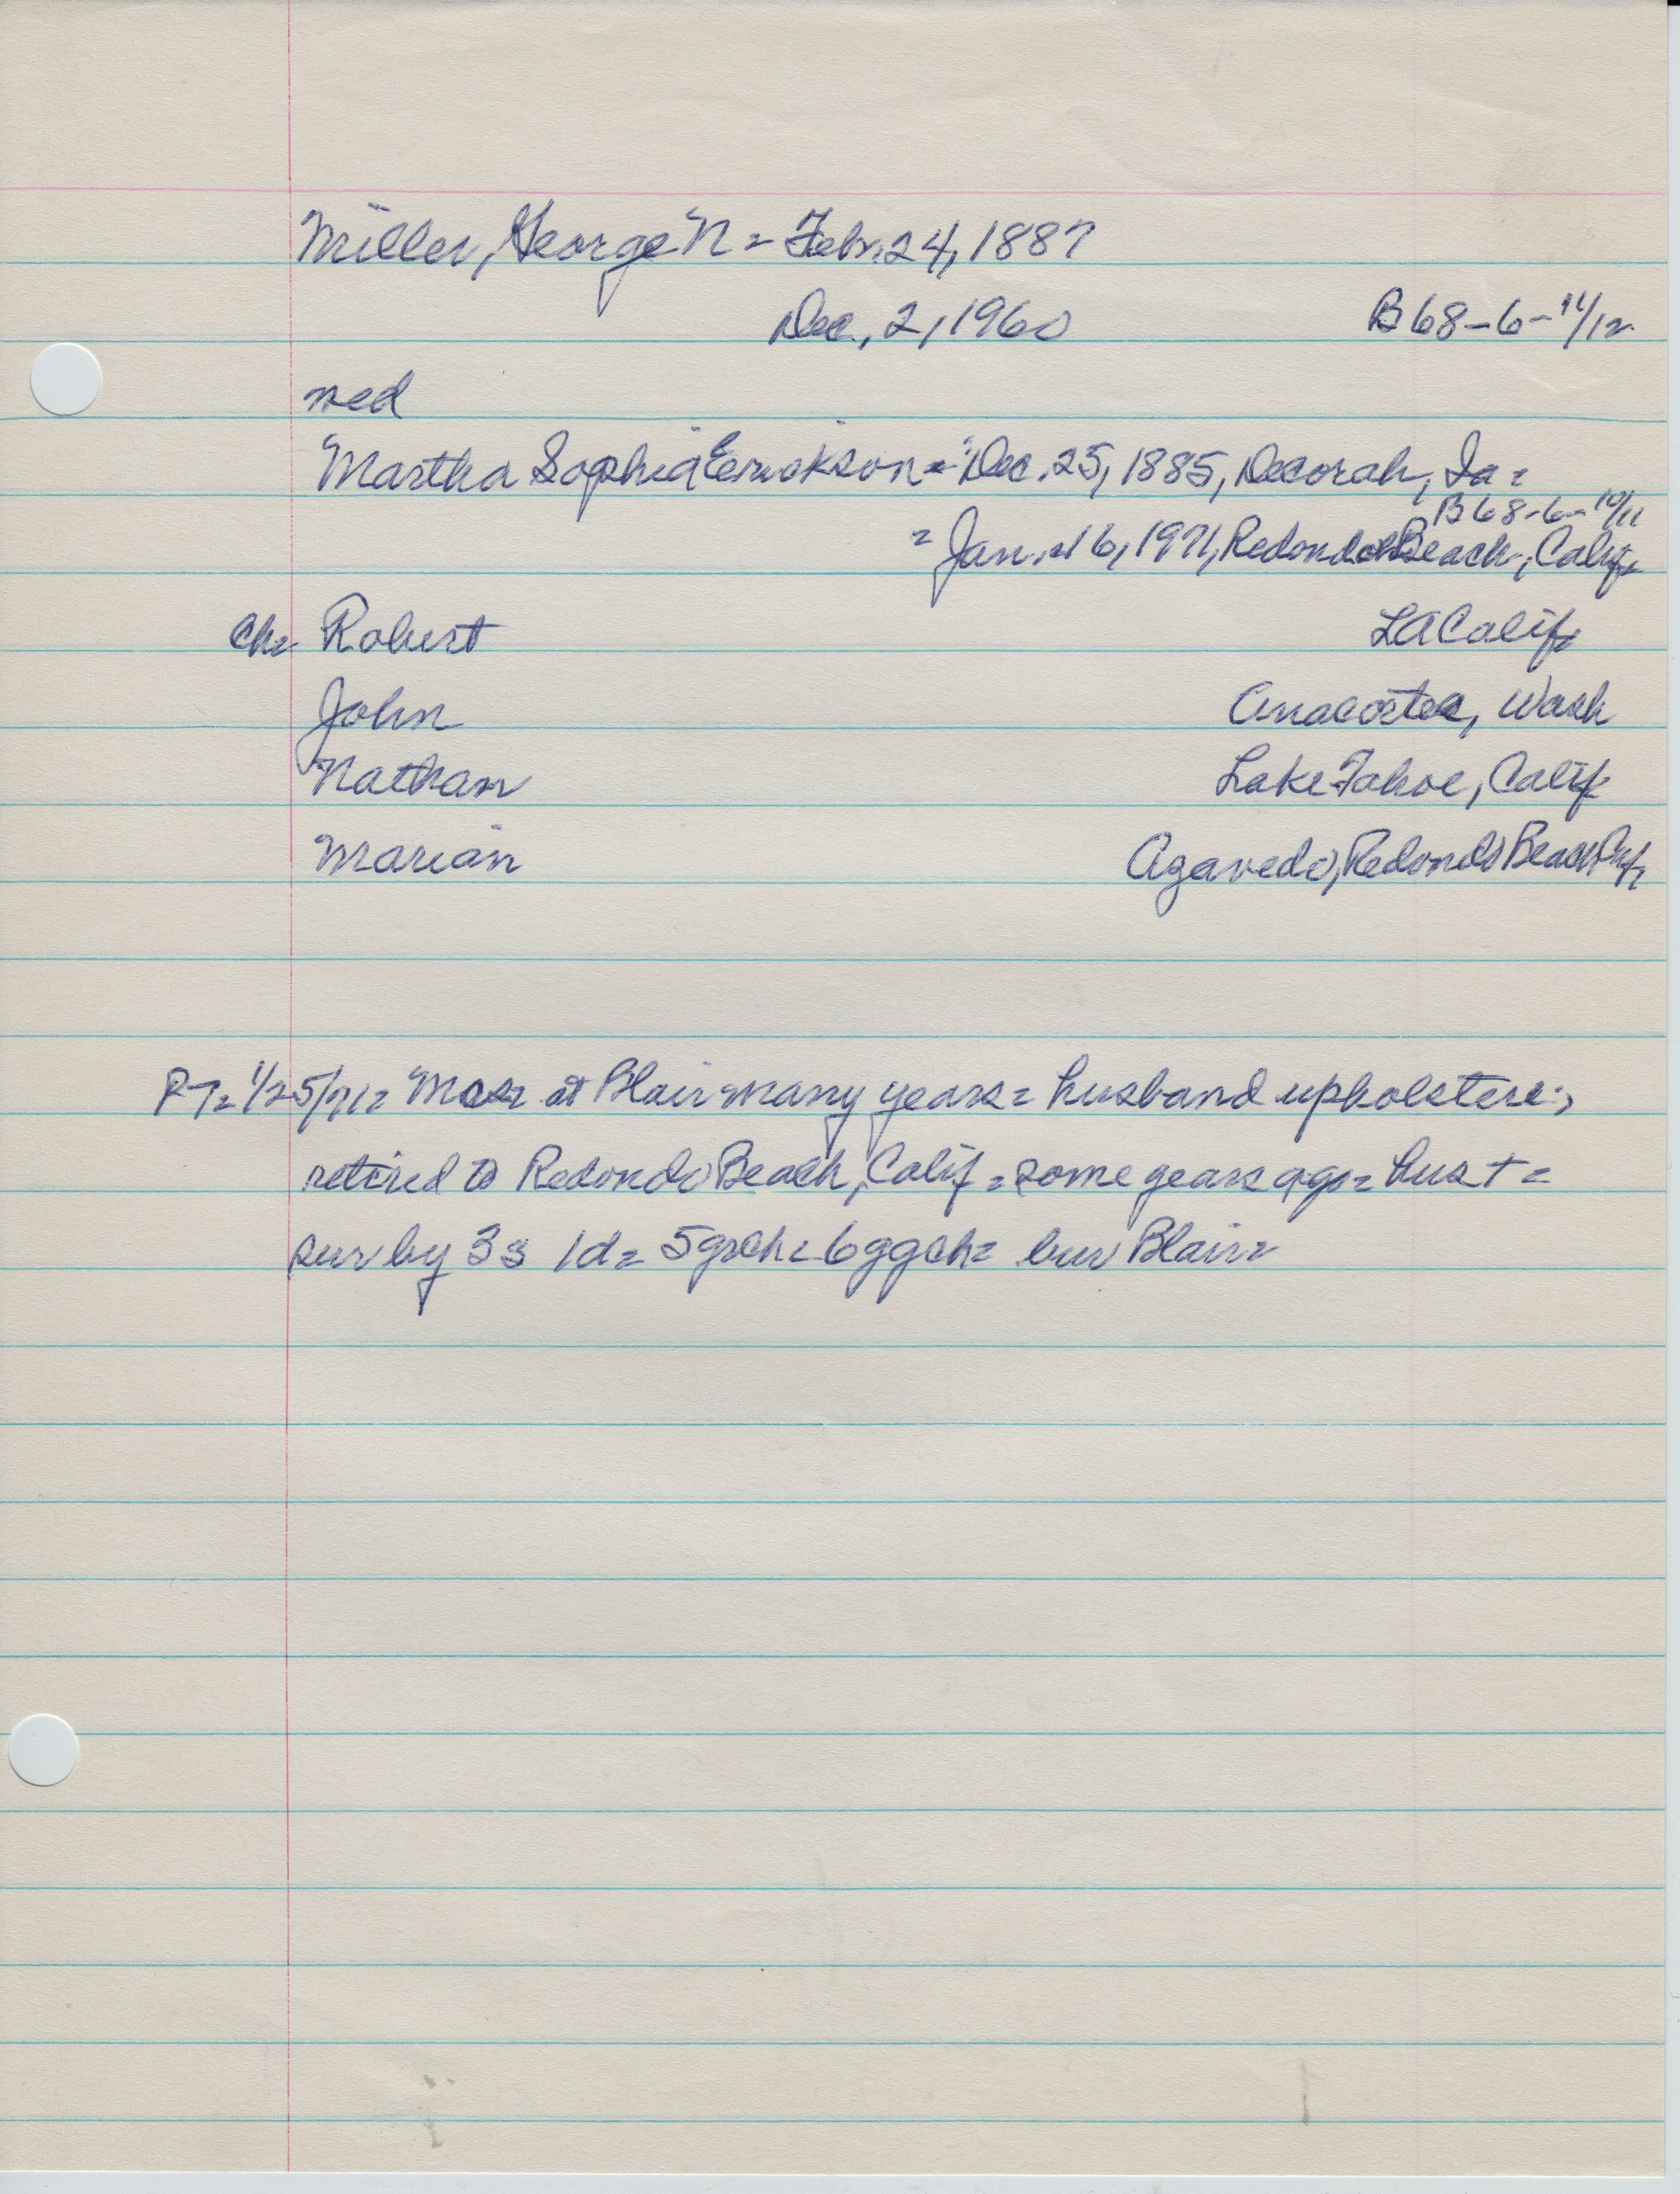 Miller, George N = Febr. 24, 1887
Dec., 2, 1960 B68-6-11/12
med
Martha Sophia Erickson = Dec. 25, 1885, Decorah, Ia =
B68-6-10/11
= Jan. 16, 1971, Redondo Beach, Calif=
Ch= Robert LA Calif=
John Anacortes, Wash
Nathan Lake Tahoe, Calif
Marian Agavedo, Redondo Beach
PT= 1/25/71= at Blair many years = husband upholsterer,
retired to Redondo Beach, Calif = some years ago = hus + =
sur by 3s 1d = 5grch = 6ggch = bur Blair=